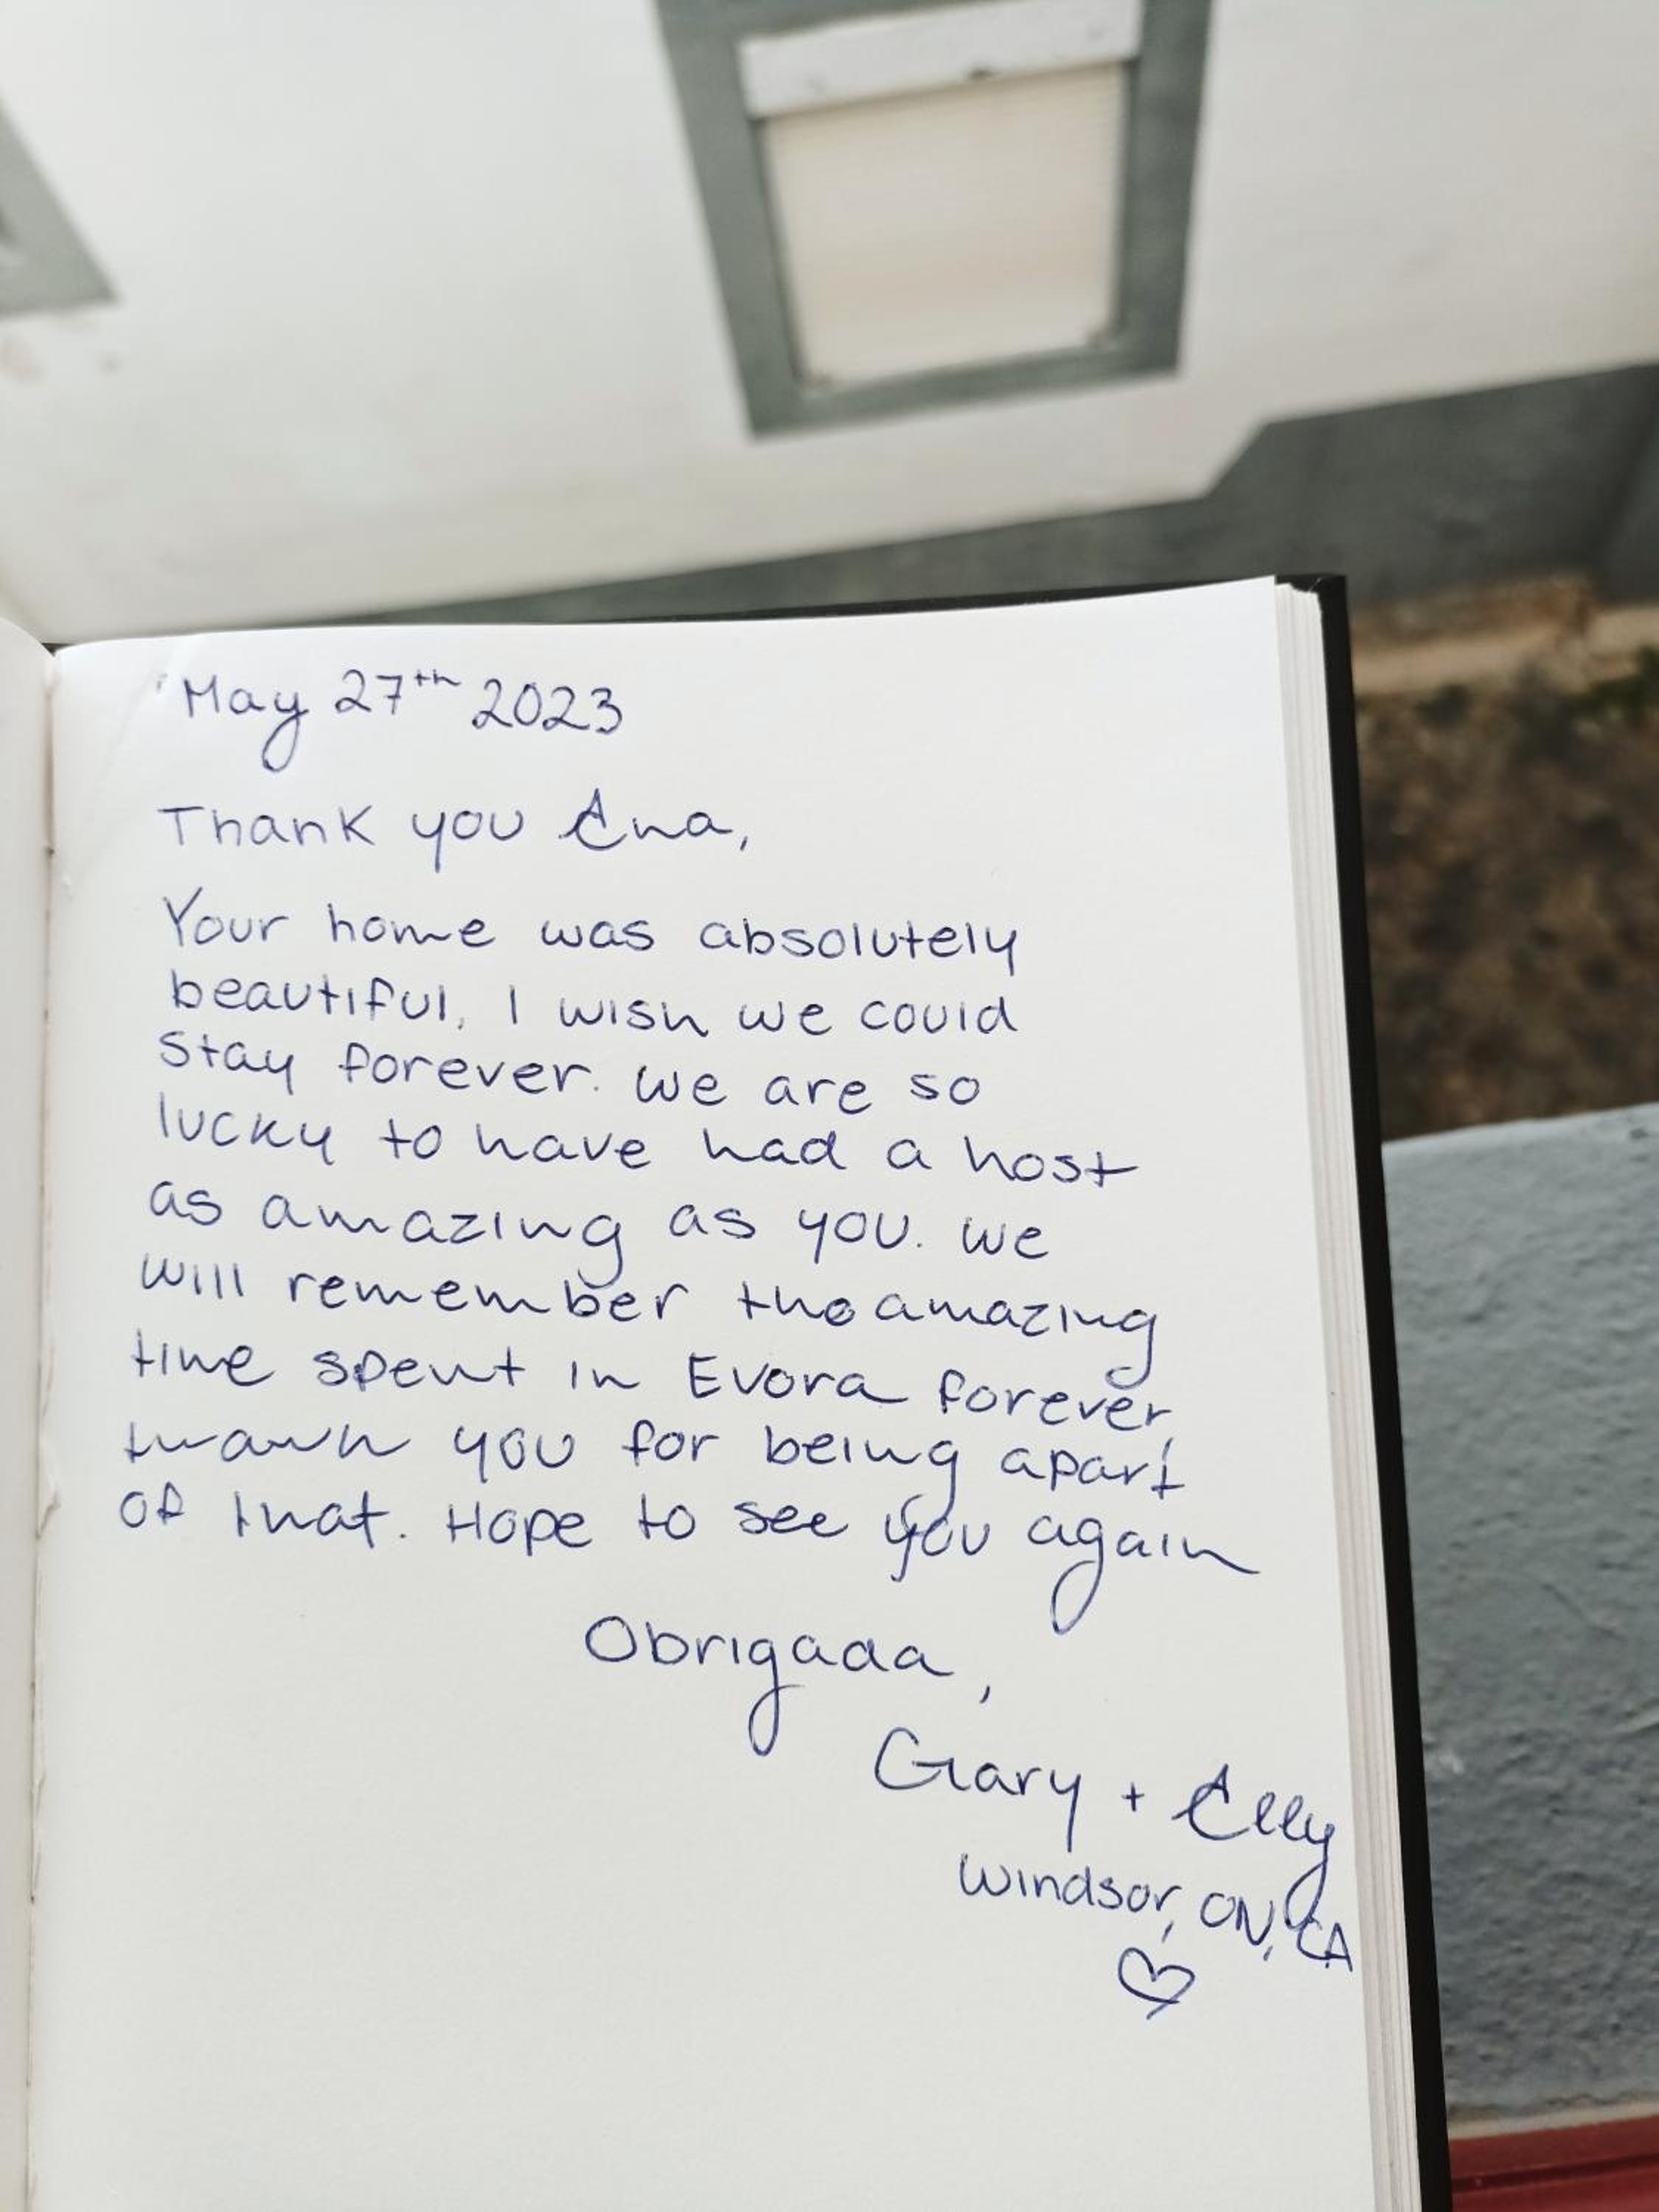 May 27th 2023
Thank you Ana,
Your home was absolutely
beautiful, I wish we could
stay forever. we are so
lucky to have had a host
as amazing as you. we
will remember the amazing
time spent in Evora forever,
thank you for being apart
of that. Hope to see you again
Obrigada,
Gary + Elly
Windsor, ON, CA